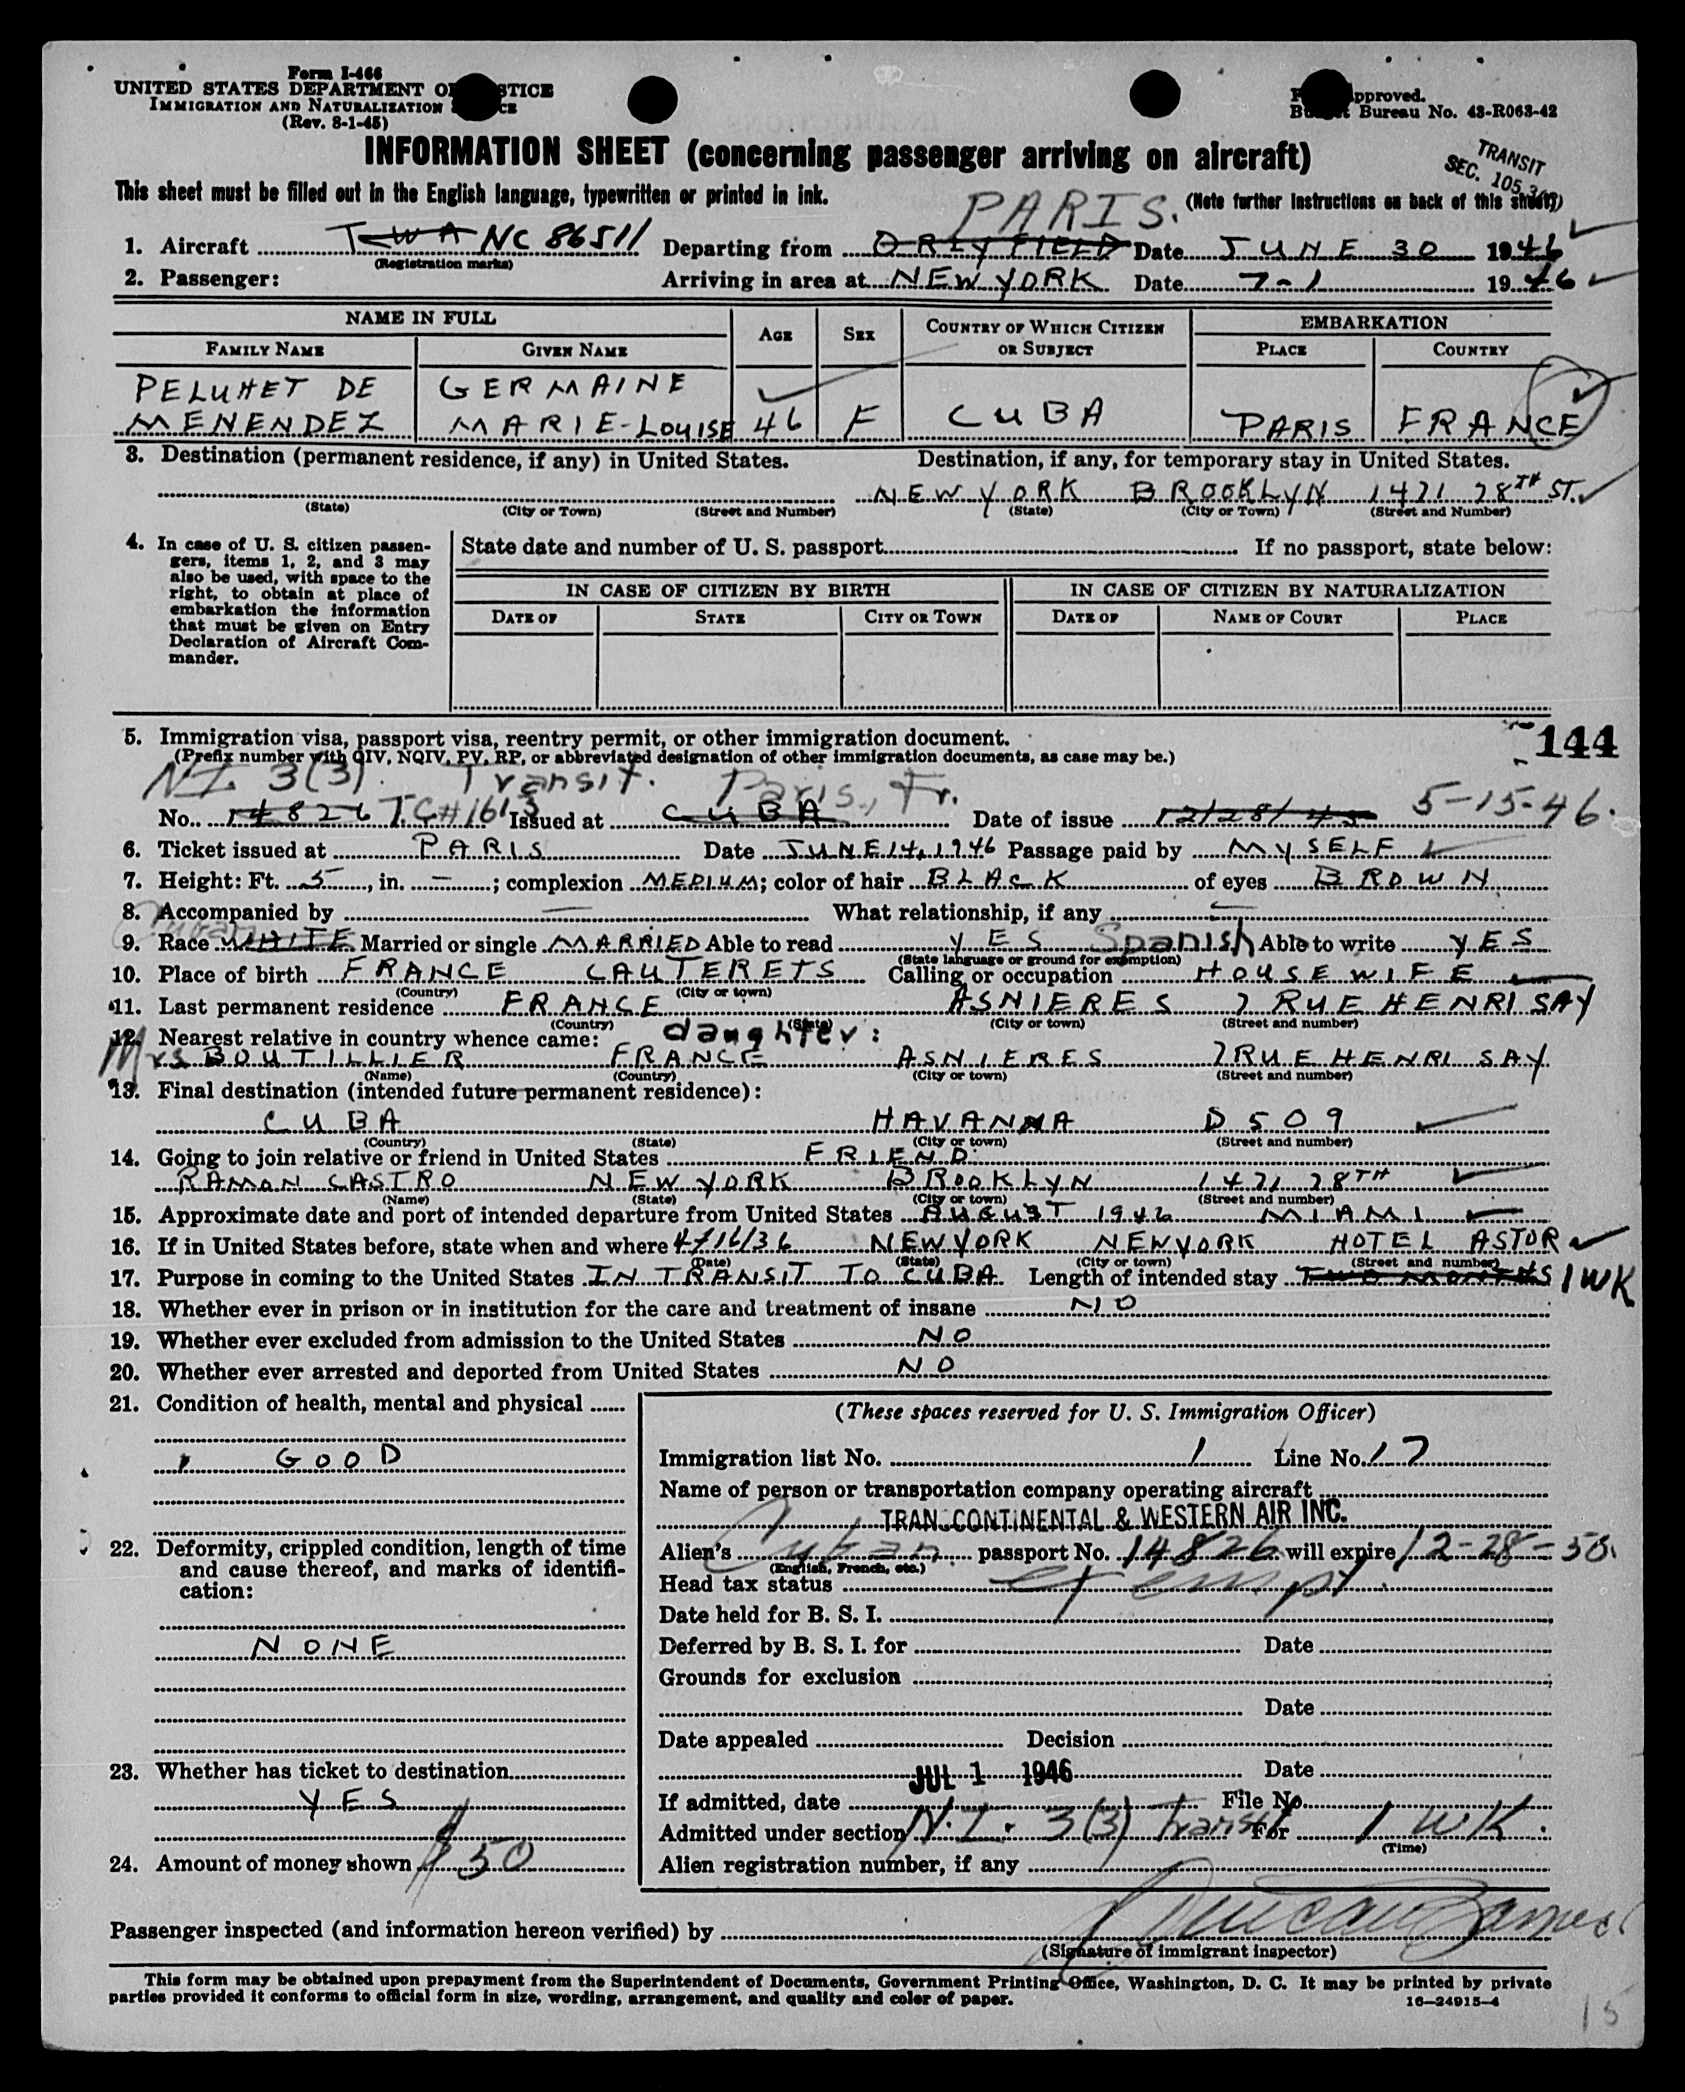 Form I-466
UNITED STATES DEPARTMENT OF JUSTICE
IMMIGRATION AND NATURALIZATION SERVICE
(Rev. 8-1-45)
Form approved.
Budget Bureau No. 43-R063-42
INFORMATION SHEET (concerning passenger arriving on aircraft)
TRANSIT
SEC. 105.3
This sheet must be filled out in the English language, typewritten or printed in ink.
(Note further instructions on back of this sheet)
PARIS.
1. Aircraft TWA NC 86511 Departing from ORLY FIELD Date JUNE 30 1946
(Registration marks)
2. Passenger: Arriving in area at NEW YORK Date 7-1 1946
NAME IN FULL AGE SEX COUNTRY OF WHICH CITIZEN OR SUBJECT EMBARKATION
FAMILY NAME GIVEN NAME PLACE COUNTRY
PELUHET DE GERMAINE
MENENDEZ MARIE-LOUISE 46 F CUBA PARIS FRANCE
3. Destination (permanent residence, if any) in United States. Destination, if any, for temporary stay in United States.
NEW YORK BROOKLYN 1471 78TH ST.
(State) (City or Town) (Street and Number) (State) (City or Town) (Street and Number)
4. In case of U. S. citizen passengers, items 1, 2, and 3 may also be used, with space to the right, to obtain at place of embarkation the information that must be given on Entry Declaration of Aircraft Commander.
State date and number of U. S. passport If no passport, state below:
IN CASE OF CITIZEN BY BIRTH IN CASE OF CITIZEN BY NATURALIZATION
DATE OF STATE CITY OR TOWN DATE OF NAME OF COURT PLACE
144
5. Immigration visa, passport visa, reentry permit, or other immigration document.
(Prefix number with QIV, NQIV, PV, RP, or abbreviated designation of other immigration documents, as case may be.)
NI 3(3) Transit. Paris, Fr.
No. 14826 TC#1613 Issued at CUBA Date of issue 12/28/45 5-15-46.
6. Ticket issued at PARIS Date JUNE 14, 1946 Passage paid by MYSELF
7. Height: Ft. 5, in. —; complexion MEDIUM; color of hair BLACK of eyes BROWN
8. Accompanied by — What relationship, if any —
Cuban
9. Race WHITE Married or single MARRIED Able to read YES Spanish Able to write YES
(State language or ground for exemption)
10. Place of birth FRANCE CAUTERETS Calling or occupation HOUSEWIFE
(Country) (City or town)
11. Last permanent residence FRANCE ASNIERES 7 RUE HENRI SAY
(Country) (State) (City or town) (Street and number)
12. Nearest relative in country whence came: daughter:
Mrs BOUTILLIER FRANCE ASNIERES 7 RUE HENRI SAY
(Name) (Country) (City or town) (Street and number)
13. Final destination (intended future permanent residence):
CUBA HAVANNA D 509
(Country) (State) (City or town) (Street and number)
14. Going to join relative or friend in United States FRIEND
RAMON CASTRO NEW YORK BROOKLYN 1471 78TH
(Name) (State) (City or town) (Street and number)
15. Approximate date and port of intended departure from United States AUGUST 1946 MIAMI
16. If in United States before, state when and where 4/16/36 NEW YORK NEW YORK HOTEL ASTOR
(Date) (State) (City or town) (Street and number)
17. Purpose in coming to the United States IN TRANSIT TO CUBA Length of intended stay TWO MONTHS 1 WK
18. Whether ever in prison or in institution for the care and treatment of insane NO
19. Whether ever excluded from admission to the United States NO
20. Whether ever arrested and deported from United States NO
21. Condition of health, mental and physical
GOOD
22. Deformity, crippled condition, length of time and cause thereof, and marks of identification:
NONE
23. Whether has ticket to destination
YES
24. Amount of money shown $50
(These spaces reserved for U. S. Immigration Officer)
Immigration list No. 1 Line No. 17
Name of person or transportation company operating aircraft
TRANSCONTINENTAL & WESTERN AIR INC.
Alien's Cuban passport No. 14826 will expire 12-28-50.
(English, French, etc.)
Head tax status exempt
Date held for B. S. I.
Deferred by B. S. I. for Date
Grounds for exclusion
Date
Date appealed Decision
Date
JUL 1 1946
If admitted, date File No.
Admitted under section N.I. 3(3) Transit For 1 WK.
(Time)
Alien registration number, if any
Passenger inspected (and information hereon verified) by
(Signature of immigrant inspector)
This form may be obtained upon prepayment from the Superintendent of Documents, Government Printing Office, Washington, D. C. It may be printed by private
parties provided it conforms to official form in size, wording, arrangement, and quality and color of paper.
16—24915-4
15